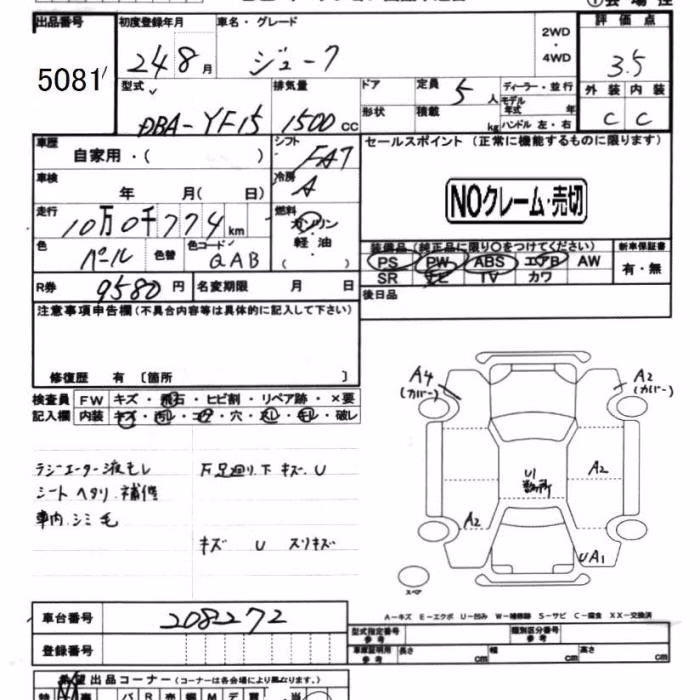 出品番号 初度登録年月 車名・グレード 2WD ・ 4WD 評価点
5081 24 8月 ジューク 3.5
型式 排気量 ドア 定員 5人 ディーラー・並行 外装 内装
DBA-YF15 1500cc 形状 積載 kg モデル年式 年 ハンドル 左・右 C C
車歴 自家用・( ) シフト FAT セールスポイント (正常に機能するものに限ります)
車検 年 月( 日) 冷房 A
NOクレーム・売切
走行 10万0千774km 燃料 ガソリン・軽油・( )
色 パール 色替 色コード QAB
装備品 (純正品に限り○をつけてください) 新車保証書
PS PW ABS エアB AW 有・無
SR ナビ TV カワ
R券 9580円 名変期限 月 日 後日品
注意事項申告欄 (不具合内容等は具体的に記入して下さい)
修復歴 有 〔箇所 〕
検査員 FW キズ・飛石・ヒビ割・リペア跡・×要
記入欄 内装 キズ・汚レ・コゲ・穴・スレ・キレ・破レ
A4 (カバー) A2 (カバー)
ラジエーター液モレ 下廻り下キズ.U
シートヘタリ.補修
車内.シミ 毛
キズ U スリキズ
U1 数ヶ所 A2
A2 UA1
スペア
A-キズ E-エクボ U-凹み W-補修跡 S-サビ C-腐食 XX-交換済
車台番号 208272
型式指定番号 参考 類別区分番号 参考
登録番号 車庫証明用 参考 長さ cm 幅 cm 高さ cm
希望出品コーナー (コーナーは各会場により異なります。)